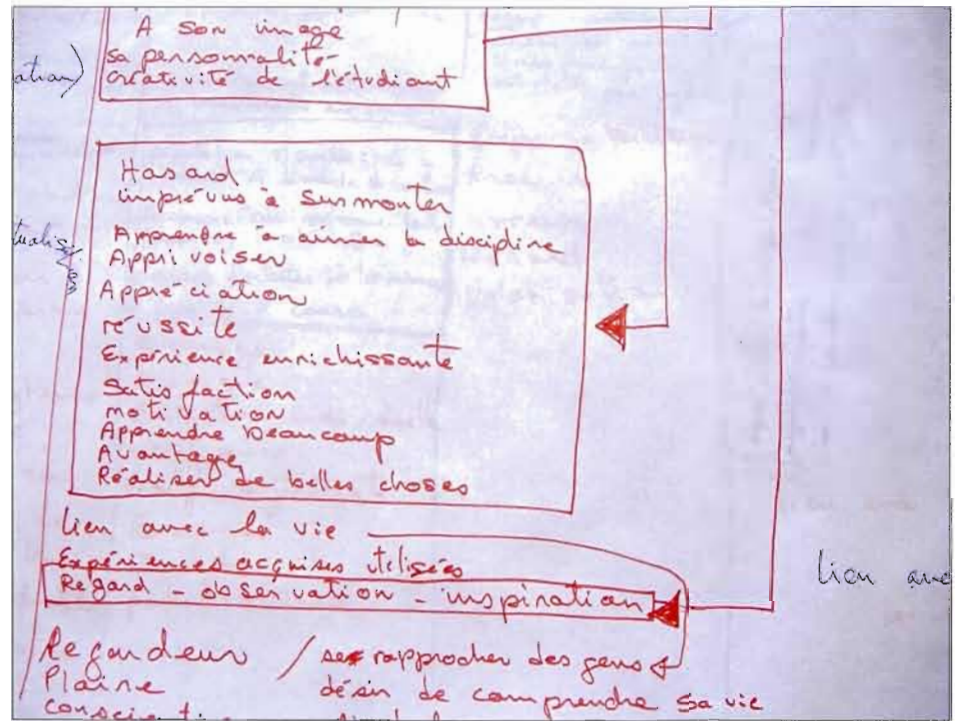 A son image
sa personnalité
créativité de l'étudiant
ation)
Hasard
imprévus à surmonter
Apprendre à aimer la discipline
Apprivoiser
Appréciation
réussite
Expérience enrichissante
Satisfaction
motivation
Apprendre beaucoup
Avantage
Réaliser de belles choses
lien avec la vie
Expériences acquises utilisées
Regard - observation - inspiration
lien ave
Regardeur / se rapprocher des gens
Plaire désir de comprendre sa vie